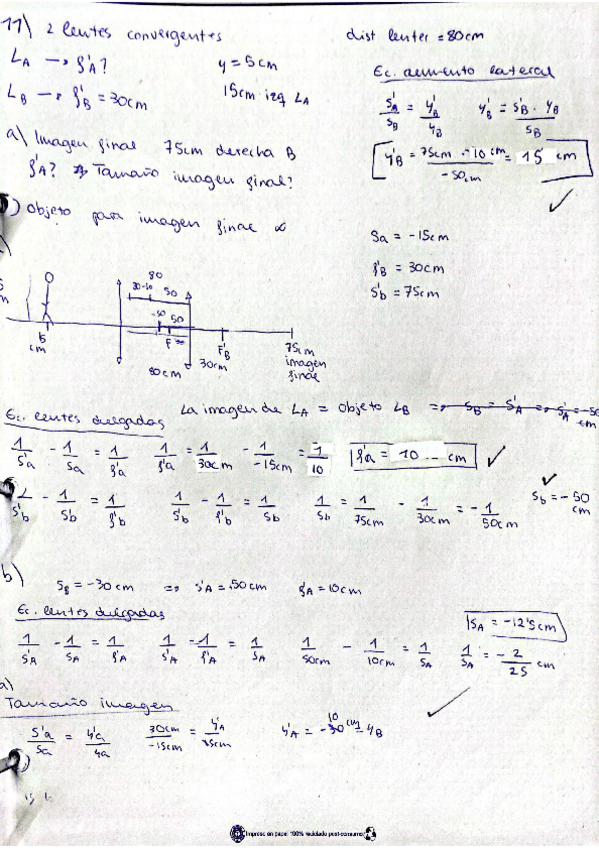 11) 2 lentes convergentes dist lentes = 80cm
LA → f'A? y = 5cm
LB → f'B = 30cm 15cm izq LA
Ec. aumento lateral
s'B/sB = y'B/yB y'B = s'B · yB/sB
y'B = 75cm · -10cm/-50cm = 15 cm ✓
a) Imagen final 75cm derecha B
f'A? Tamaño imagen final?
) Objeto para imagen final ∞
Sa = -15cm
f'B = 30cm
S'b = 75cm
80
30-50 50
-50 50
15 cm
F
80cm
F'B
30cm
75cm imagen final
Ec. lentes delgadas La imagen de LA = objeto LB ⇒ SB = S'A ⇒ S'A = -50 cm
1/S'a - 1/Sa = 1/f'a 1/f'a = 1/30cm - 1/-15cm = 1/10 f'a = 10 cm ✓
1/S'b - 1/Sb = 1/f'b 1/S'b - 1/f'b = 1/Sb 1/Sb = 1/75cm - 1/30cm = -1/50cm Sb = -50 cm ✓
b) SB = -30cm ⇒ S'A = 50cm f'A = 10cm
Ec. lentes delgadas
1/S'A - 1/SA = 1/f'A 1/S'A - 1/f'A = 1/SA 1/50cm - 1/10cm = 1/SA 1/SA = -2/25 cm SA = -12'5cm
a)
Tamaño imagen ✓
S'a/Sa = y'a/ya 30cm/-15cm = y'A/5cm y'A = -10 cm = yB
Impreso en papel 100% reciclado post-consumo